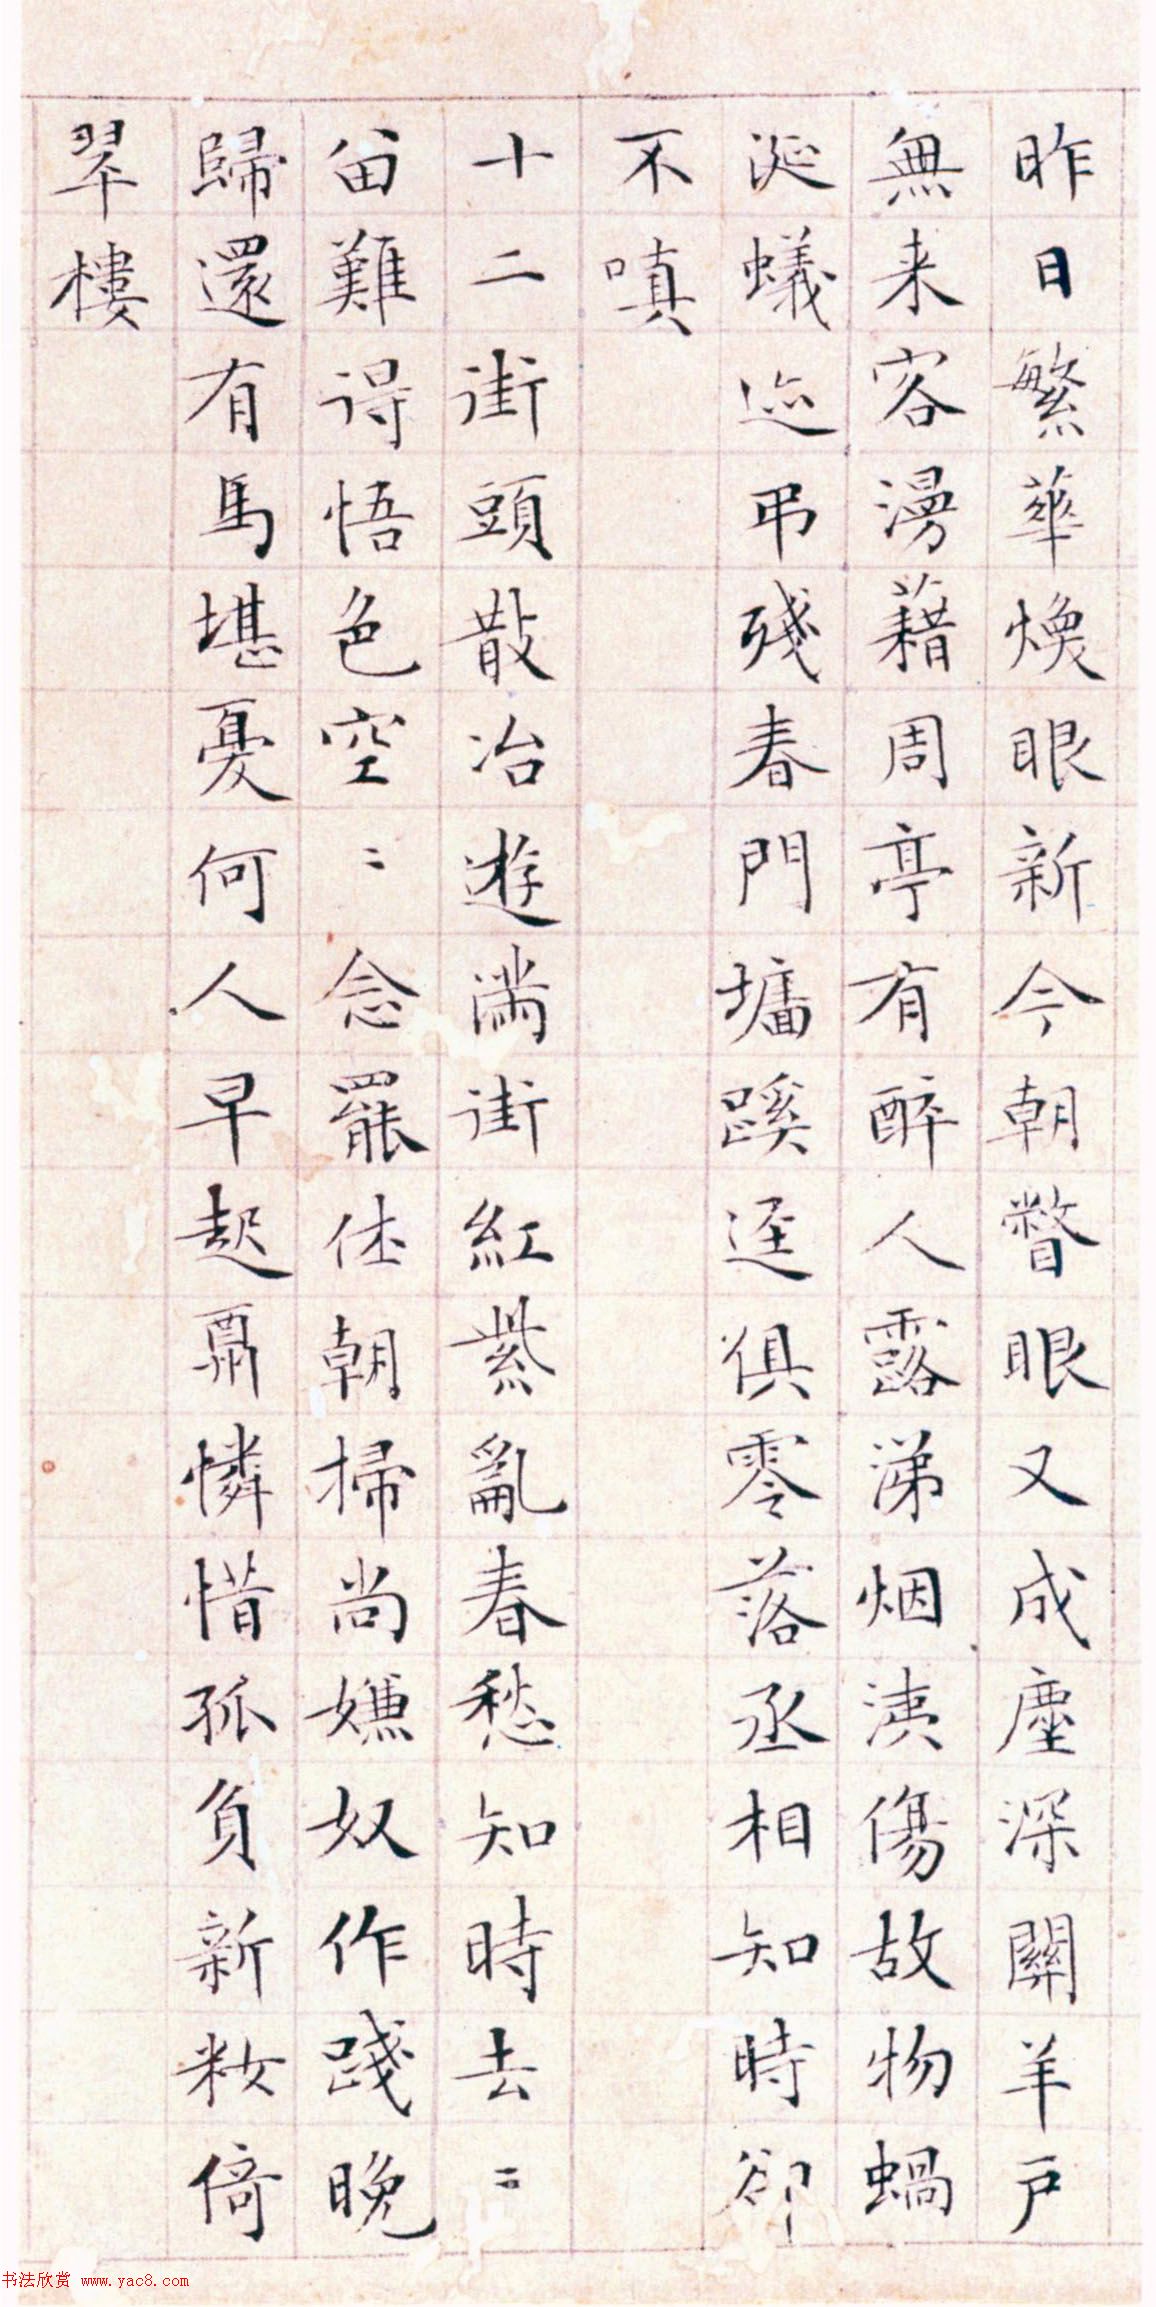 昨日繁華煥眼新今朝瞥眼又成塵深關羊户
無来客漫藉周亭有醉人露涕烟洟傷故物蝸
涎蟻迹弔殘春門墻蹊逕俱零落丞相知時卻
不嗔
十二街頭散冶遊滿街紅紫亂春愁知時去〻
留難得悟色空〻念罷休朝掃尚嫌奴作踐晚
歸還有馬堪憂何人早起鬲憐惜孤負新粧倚
翠樓
书法欣赏 www.yac8.com